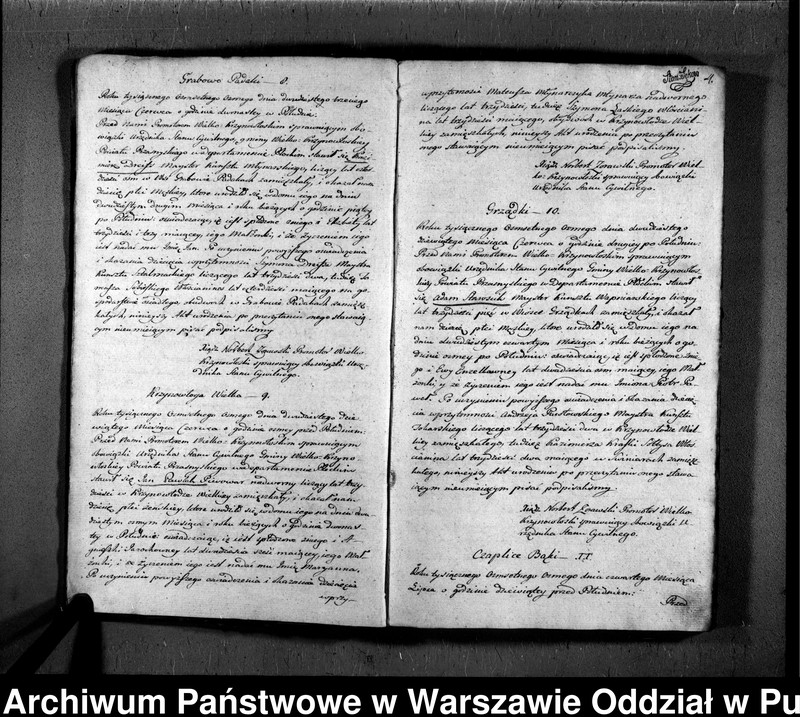 Grabowo Padaki — 8.
Roku tysiącznego Osmsetnego Osmego dnia dwudziestego trzeciego
Miesiąca Czerwca o godzinie dwunastey w Południe.
Przed Nami Proboszczem Wielko-Krzynowłoskim sprawuiącym obo-
wiązki Urzędnika Stanu Cywilnego, gminy Wielko-Krzynowłoskiey
Powiatu Przasnyskiego w Departamencie Płockim stawił się
Mayster Kunsztu Młynarskiego, liczący lat
w Wsi Grabowie Padukach zamieszkały, i okazał nam
dziecię płci Męskiey, które urodziło się w domu iego na dniu
dwudziestym drugim Miesiąca i roku bieżących o godzinie piątey
po Południu: oświadczaiąc, iż iest spłodzone z niego i Elżbiety lat
trzydzieści i trzy maiącey, iego Małżonki, i że życzeniem iego
iest nadać mu Imię Jan. Po uczynieniu powyższego oświadczenia
i okazania dziecięcia w przytomności Szymona Maystra
Kunsztu liczącego lat trzydzieści dwa, tudzież
lat czterdzieści maiącego na go-
spodarstwie osiadłego obudwóch w Grabowie Padukach zamiesz-
kałych, ninieyszy Akt urodzenia po przeczytaniu onego stawaią-
cym nieumieiącym pisać podpisaliśmy
Xiądz Norbert Żórawski Proboszcz Wielko-
Krzynowłoski sprawuiący obowiązki Urzę-
dnika Stanu Cywilnego.
Krzynowłoga Wielka — 9.
Roku tysiącznego Osmsetnego osmego dnia dwudziestego dzie-
wiątego Miesiąca Czerwca o godzinie osmey przed Południem:
Przed Nami Proboszczem Wielko-Krzynowłoskim sprawuiącym
obowiązki Urzędnika Stanu Cywilnego Gminy Wielko-Krzyno-
włoskiey Powiatu Przasnyskiego w Departamencie Płockim
stawił się Jan Pawlak Piwowar nadworny liczący lat trzy-
dzieści w Krzynowłodze Wielkiey zamieszkały, i okazał nam
dziecię płci żeńskiey, które urodziło się w domu iego na dniu dwu-
dziestym osmym Miesiąca i roku bieżących o godzinie dwunas-
tey w Południe: oświadczaiąc, iż iest spłodzone z niego i A-
gnieszki lat dwadzieścia sześć maiącey, iego Mał-
żonki, i że życzeniem iego iest nadać mu Imię Maryanna.
Po uczynieniu powyższego oświadczenia i okazania dziecięcia
w przy—
4.
w przytomności Mateusza Młynarczyka Młynarza nadwornego
liczącego lat trzydzieści, tudzież Szymona Żaskiego Włościani-
na lat trzydzieści maiącego, obydwóch w Krzynowłodze Wiel-
kiey zamieszkałych, ninieyszy Akt urodzenia po przeczytaniu
onego stawaiącym nieumieiącym pisać podpisaliśmy.
Xiądz Norbert Żórawski Proboszcz Wiel-
ko-Krzynowłoski sprawuiący obowiązki
Urzędnika Stanu Cywilnego.
Grządki — 10.
Roku tysiącznego Osmsetnego Osmego dnia dwudziestego
dziewiątego Miesiąca Czerwca o godzinie drugiey po Południu:
Przed Nami Proboszczem Wielko-Krzynowłoskim sprawuiącym
obowiązki Urzędnika Stanu Cywilnego Gminy Wielko-Krzynowłos-
kiey Powiatu Przasnyskiego w Departamencie Płockim stawił
się Adam Maystr Kunsztu liczący
lat trzydzieści pięć w Wiosce Grządkach zamieszkały, i okazał
nam dziecię płci Męskiey, które urodziło się w domu iego na
dniu dwudziestym czwartym Miesiąca i roku bieżących o go-
dzinie osmey po Południu: oświadczaiąc, iż iest spłodzone z nie-
go i Ewy lat dwadzieścia osm maiącey, iego Mał-
żonki, i że życzeniem iego iest nadać mu Imiona Piotr Pa-
weł. Po uczynieniu powyższego oświadczenia i okazania dziecię-
cia w przytomności Andrzeja Maystra Kunszt.
liczącego lat trzydzieści dwa w Krzynowłodze Wiel-
kiey zamieszkałego, tudzież Kazimierza Włoś-
cianina lat trzydzieści dwa maiącego w zamiesz-
kałego, ninieyszy Akt urodzenia po przeczytaniu onego stawa-
iącym nieumieiącym pisać podpisaliśmy.
Xiądz Norbert Żórawski Proboszcz Wielko-
Krzynowłoski sprawuiący obowiązki U-
rzędnika Stanu Cywilnego.
Czaplice Bąki — 11.
Roku tysiącznego Osmsetnego Osmego dnia czwartego Miesiąca
Lipca o godzinie dziewiątey przed Południem:
Przed
Archiwum Państwowe w Warszawie Oddział w Pu